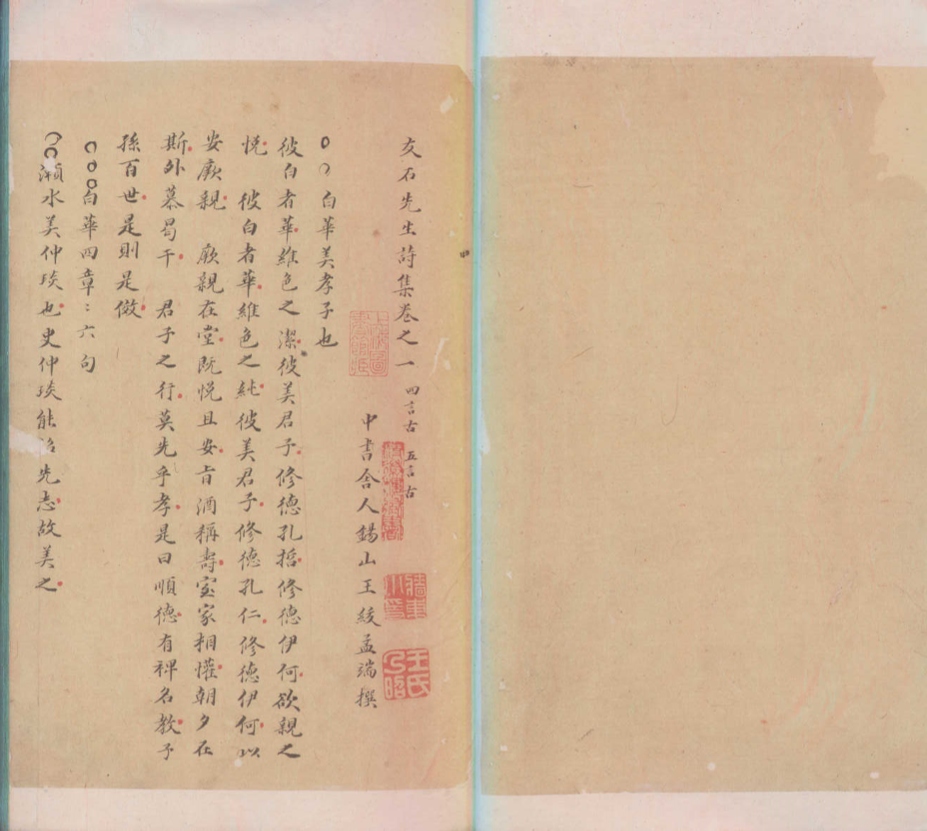 友石先生詩集卷之一 四言古 五言古
中書舍人錫山王紱孟端撰
白華美孝子也
彼白者華維色之潔彼美君子修德孔哲修德伊何欲親之
悅 彼白者華維色之純彼美君子修德孔仁修德伊何以
安厥親 厥親在堂既悅且安旨酒稱壽室家相懽朝夕在
斯外慕曷干 君子之行莫先乎孝是曰順德有裨名教子
孫百世是則是傚
白華四章〻六句
瀕水美仲琰也史仲琰能 先志故美之
王氏